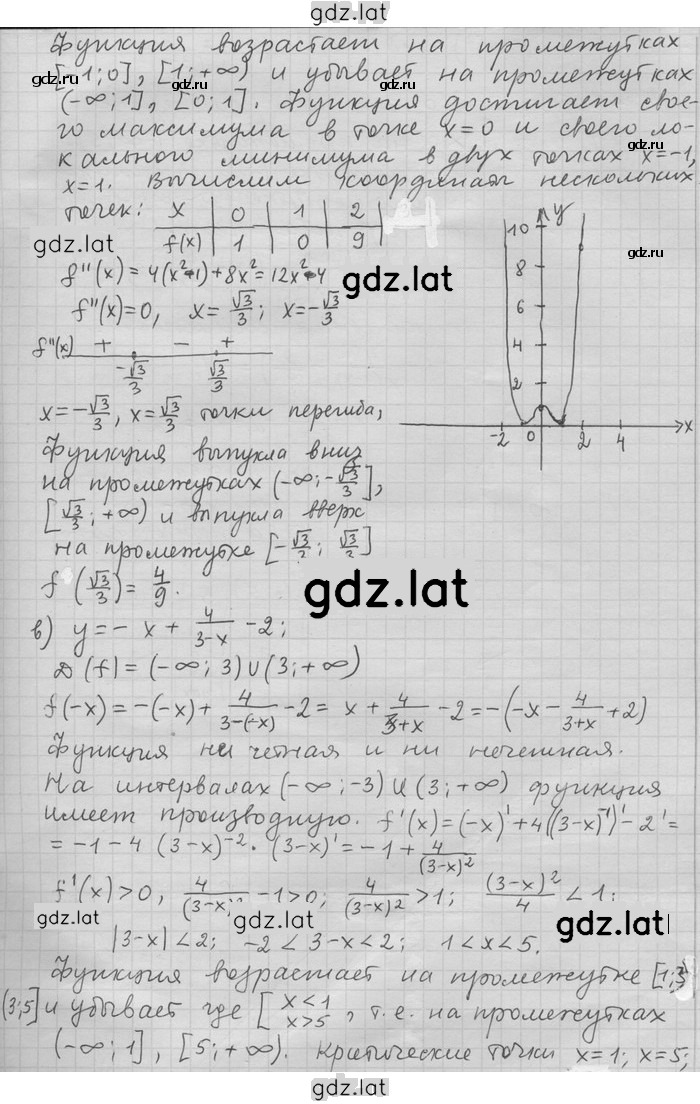 gdz.lat
Функция возрастает на промежутках
[-1;0], [1;+∞) и убывает на промежутках
gdz.lat
(-∞;1], [0;1]. Функция достигает свое-
го максимума в точке x=0 и своего ло-
gdz.lat
кального минимума в двух точках x=-1,
x=1. Вычислим координаты нескольких
точек: x | 0 | 1 | 2
f(x) | 1 | 0 | 9
gdz.lat
gdz.lat
f''(x)=4(x²-1)+8x²=12x²-4
gdz.lat
f''(x)=0, x=√3/3; x=-√3/3
f''(x) + - +
-√3/3 √3/3
y
10
8
6
4
2
-2 0 2 4 x
x=-√3/3, x=√3/3 точки перегиба,
Функция выпукла вниз
на промежутках (-∞;-√3/3],
[√3/3;+∞) и выпукла вверх
на промежутке [-√3/3; √3/3]
gdz.lat
f(√3/3)=4/9.
в) y=-x+4/(3-x)-2;
D(f)=(-∞;3)∪(3;+∞)
f(-x)=-(-x)+4/(3-(-x))-2=x+4/(3+x)-2=-(-x-4/(3+x)+2)
Функция ни четная и ни нечетная.
На интервалах (-∞;-3)∪(3;+∞) функция
имеет производную. f'(x)=(-x)'+4((3-x)⁻¹)'-2'=
=-1-4(3-x)⁻²·(3-x)'=-1+4/(3-x)²
f'(x)>0, 4/(3-x)²-1>0; 4/(3-x)²>1; (3-x)²/4<1;
gdz.lat
gdz.lat
|3-x|<2; -2<3-x<2; 1<x<5.
Функция возрастает на промежутке [1;3)
gdz.lat
(3;5] и убывает где [x<1 x>5, т.е. на промежутках
(-∞;1], [5;+∞). Критические точки x=1; x=5;
gdz.lat